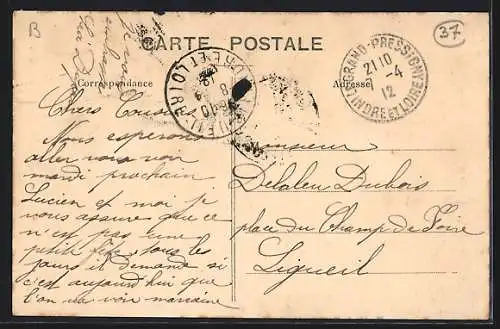 B
37
CARTE POSTALE
Correspondance
Adresse
GRAND-PRESSIGNY
21 10
-4
12
INDRE ET LOIRE
Chers Cousins
Nous esperons
aller vous voir
mardi prochain
Lucien et moi je
vous assure que ce
n'est pas une
petite fête tous les
jours il demande si
c'est aujourd'hui que
l'on va voir marraine
Monsieur
Delaleu Dubois
place du Champ de Foire
Ligueil